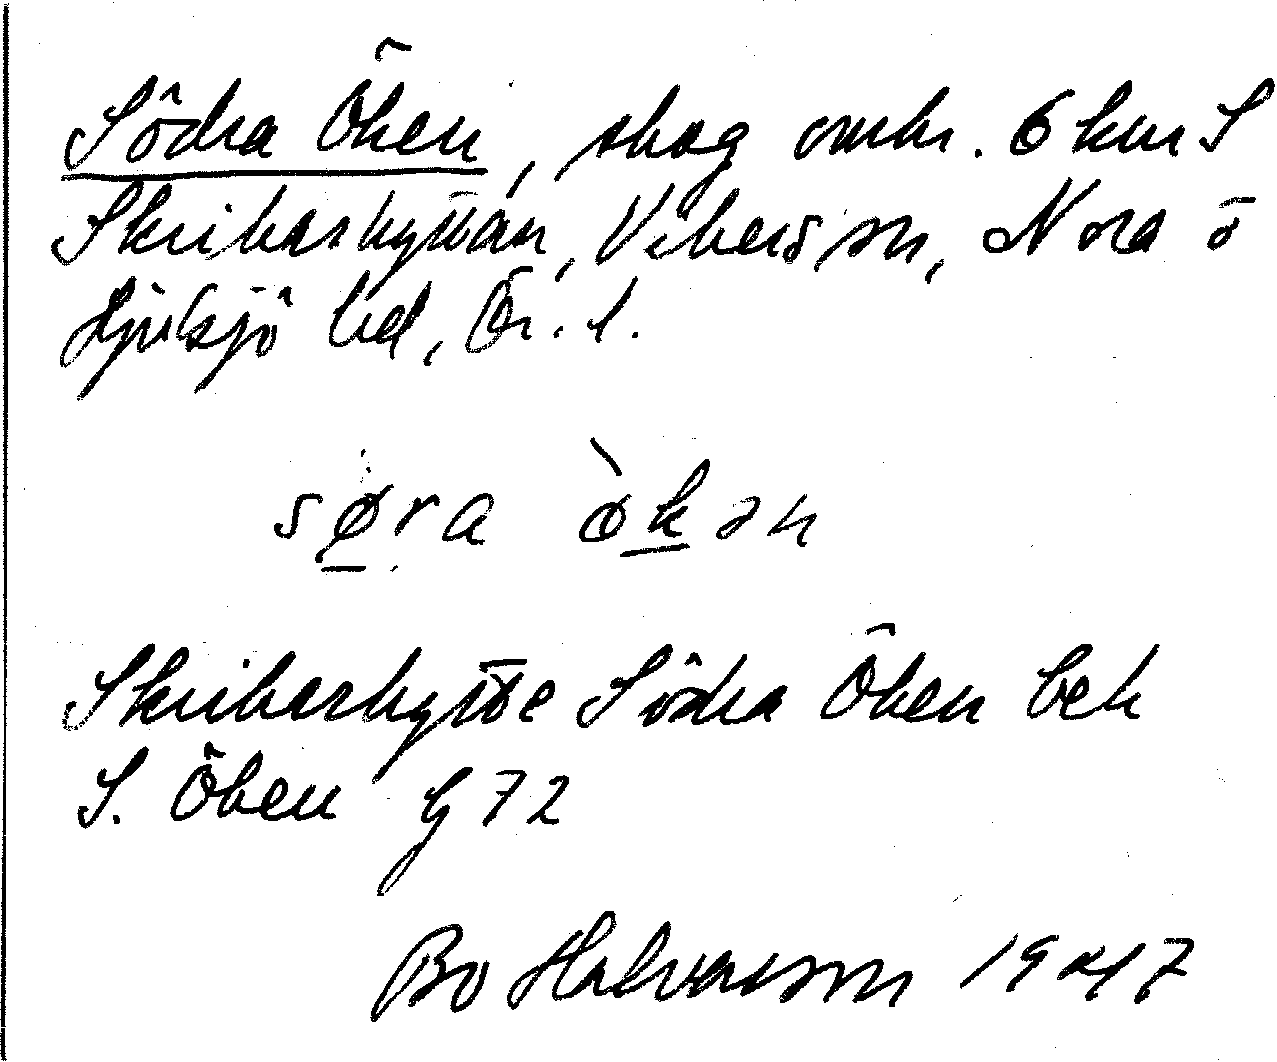 Södra Öken, skog omkr. 6 km S
Skrikarhyttan, Vikers sn, Nora o
Hjulsjö bd, Ör. l.
søra òkən
Skrikarhytte Södra Öken bek
S. Öken G 72
Bo Halvarson 1947